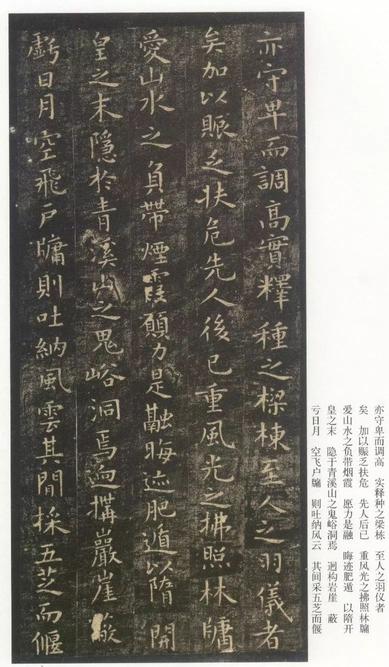 亦守卑而調高實釋種之樑棟至人之羽儀者
矣加以賑乏扶危先人後已重風光之拂照林牖
愛山水之負帶煙霞願力是融晦迹肥遁以隋開
皇之末隱於青溪山之鬼峪洞焉迥構巖崖蔽
虧日月空飛戶牖則吐納風雲其間採五芝而偃
亦守卑而调高 实释种之梁栋 至人之羽仪者
矣 加以赈乏扶危 先人后已 重风光之拂照林牖
爱山水之负带烟霞 愿力是融 晦迹肥遁 以隋开
皇之末 隐于青溪山之鬼峪洞焉 迥构岩崖 蔽
亏日月 空飞户牖 则吐纳风云 其间采五芝而偃